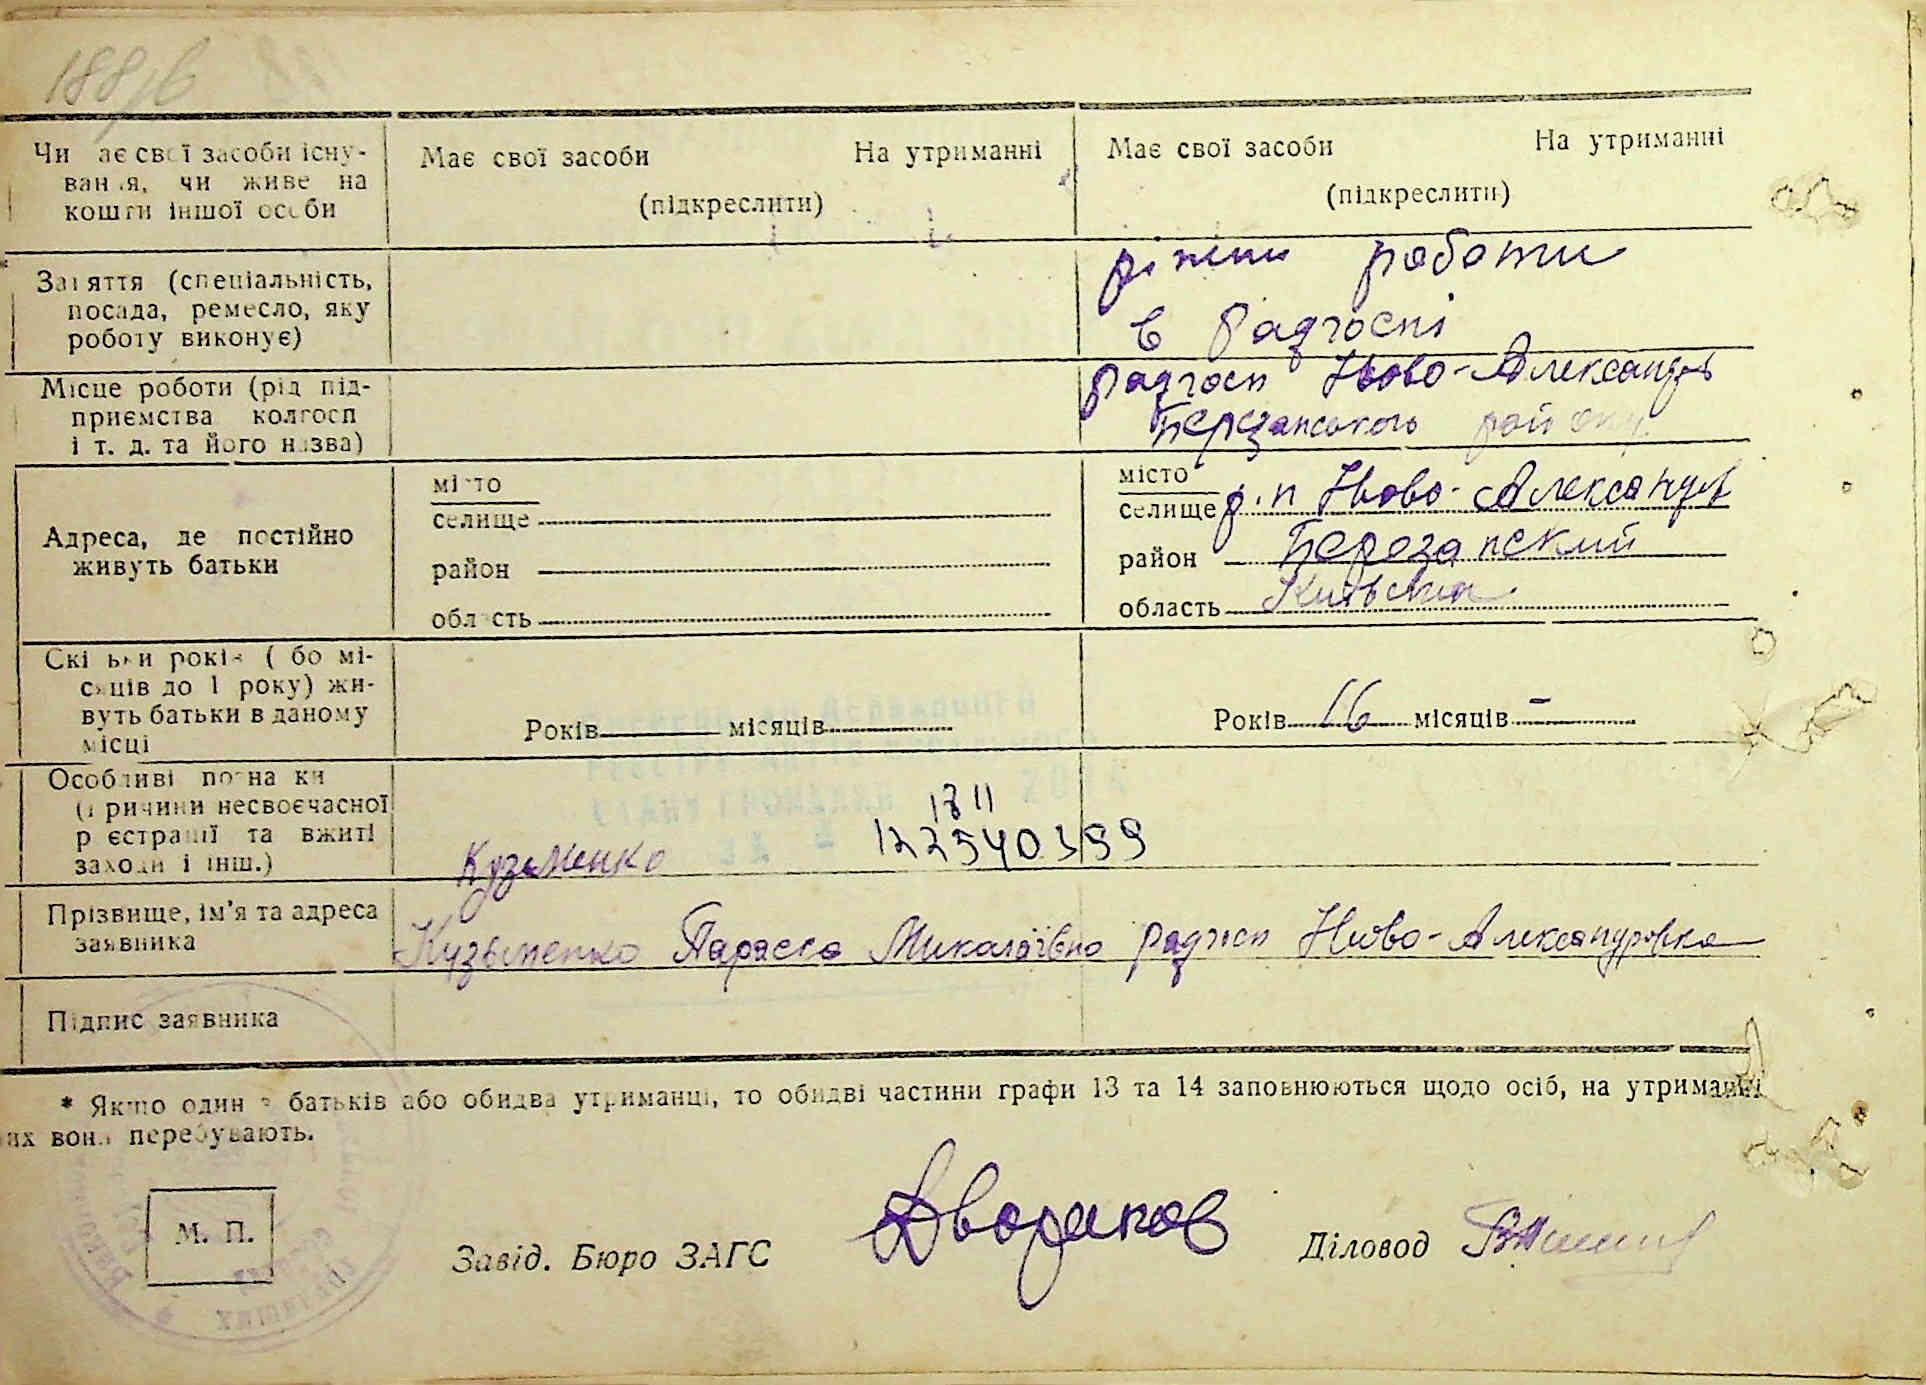 188/в
Чи ає свої засоби існу-
вання, чи живе на
кошти іншої особи
Має свої засоби На утриманні
(підкреслити)
Має свої засоби На утриманні
(підкреслити)
Заняття (спеціальність,
посада, ремесло, яку
роботу виконує)
ріжни роботи
в Радгоспі
Місце роботи (рід під-
приємства колгосп
і т. д. та його назва)
Радгосп Ново-Александр
Березанського району
Адреса, де постійно
живуть батьки
місто
селище
район
область
місто
селище р.п Ново-Александр
район Березанский
область Київська
Скі ьки років ( бо мі-
сяців до 1 року) жи-
вуть батьки в даному
місці
Років місяців
Років 16 місяців –
Особливі позна ки
( ричини несвоєчасної
р єстрації та вжиті
заходи і інш.)
Кузьменко
12 11
122540399
Прізвище, ім'я та адреса
заявника
Кузьменко Параска Миколаївна радгосп Ново-Александровка
Підпис заявника
* Якщо один з батьків або обидва утриманці, то обидві частини графи 13 та 14 заповнюються щодо осіб, на утриманні
их вони перебувають.
М. П.
Завід. Бюро ЗАГС
Діловод